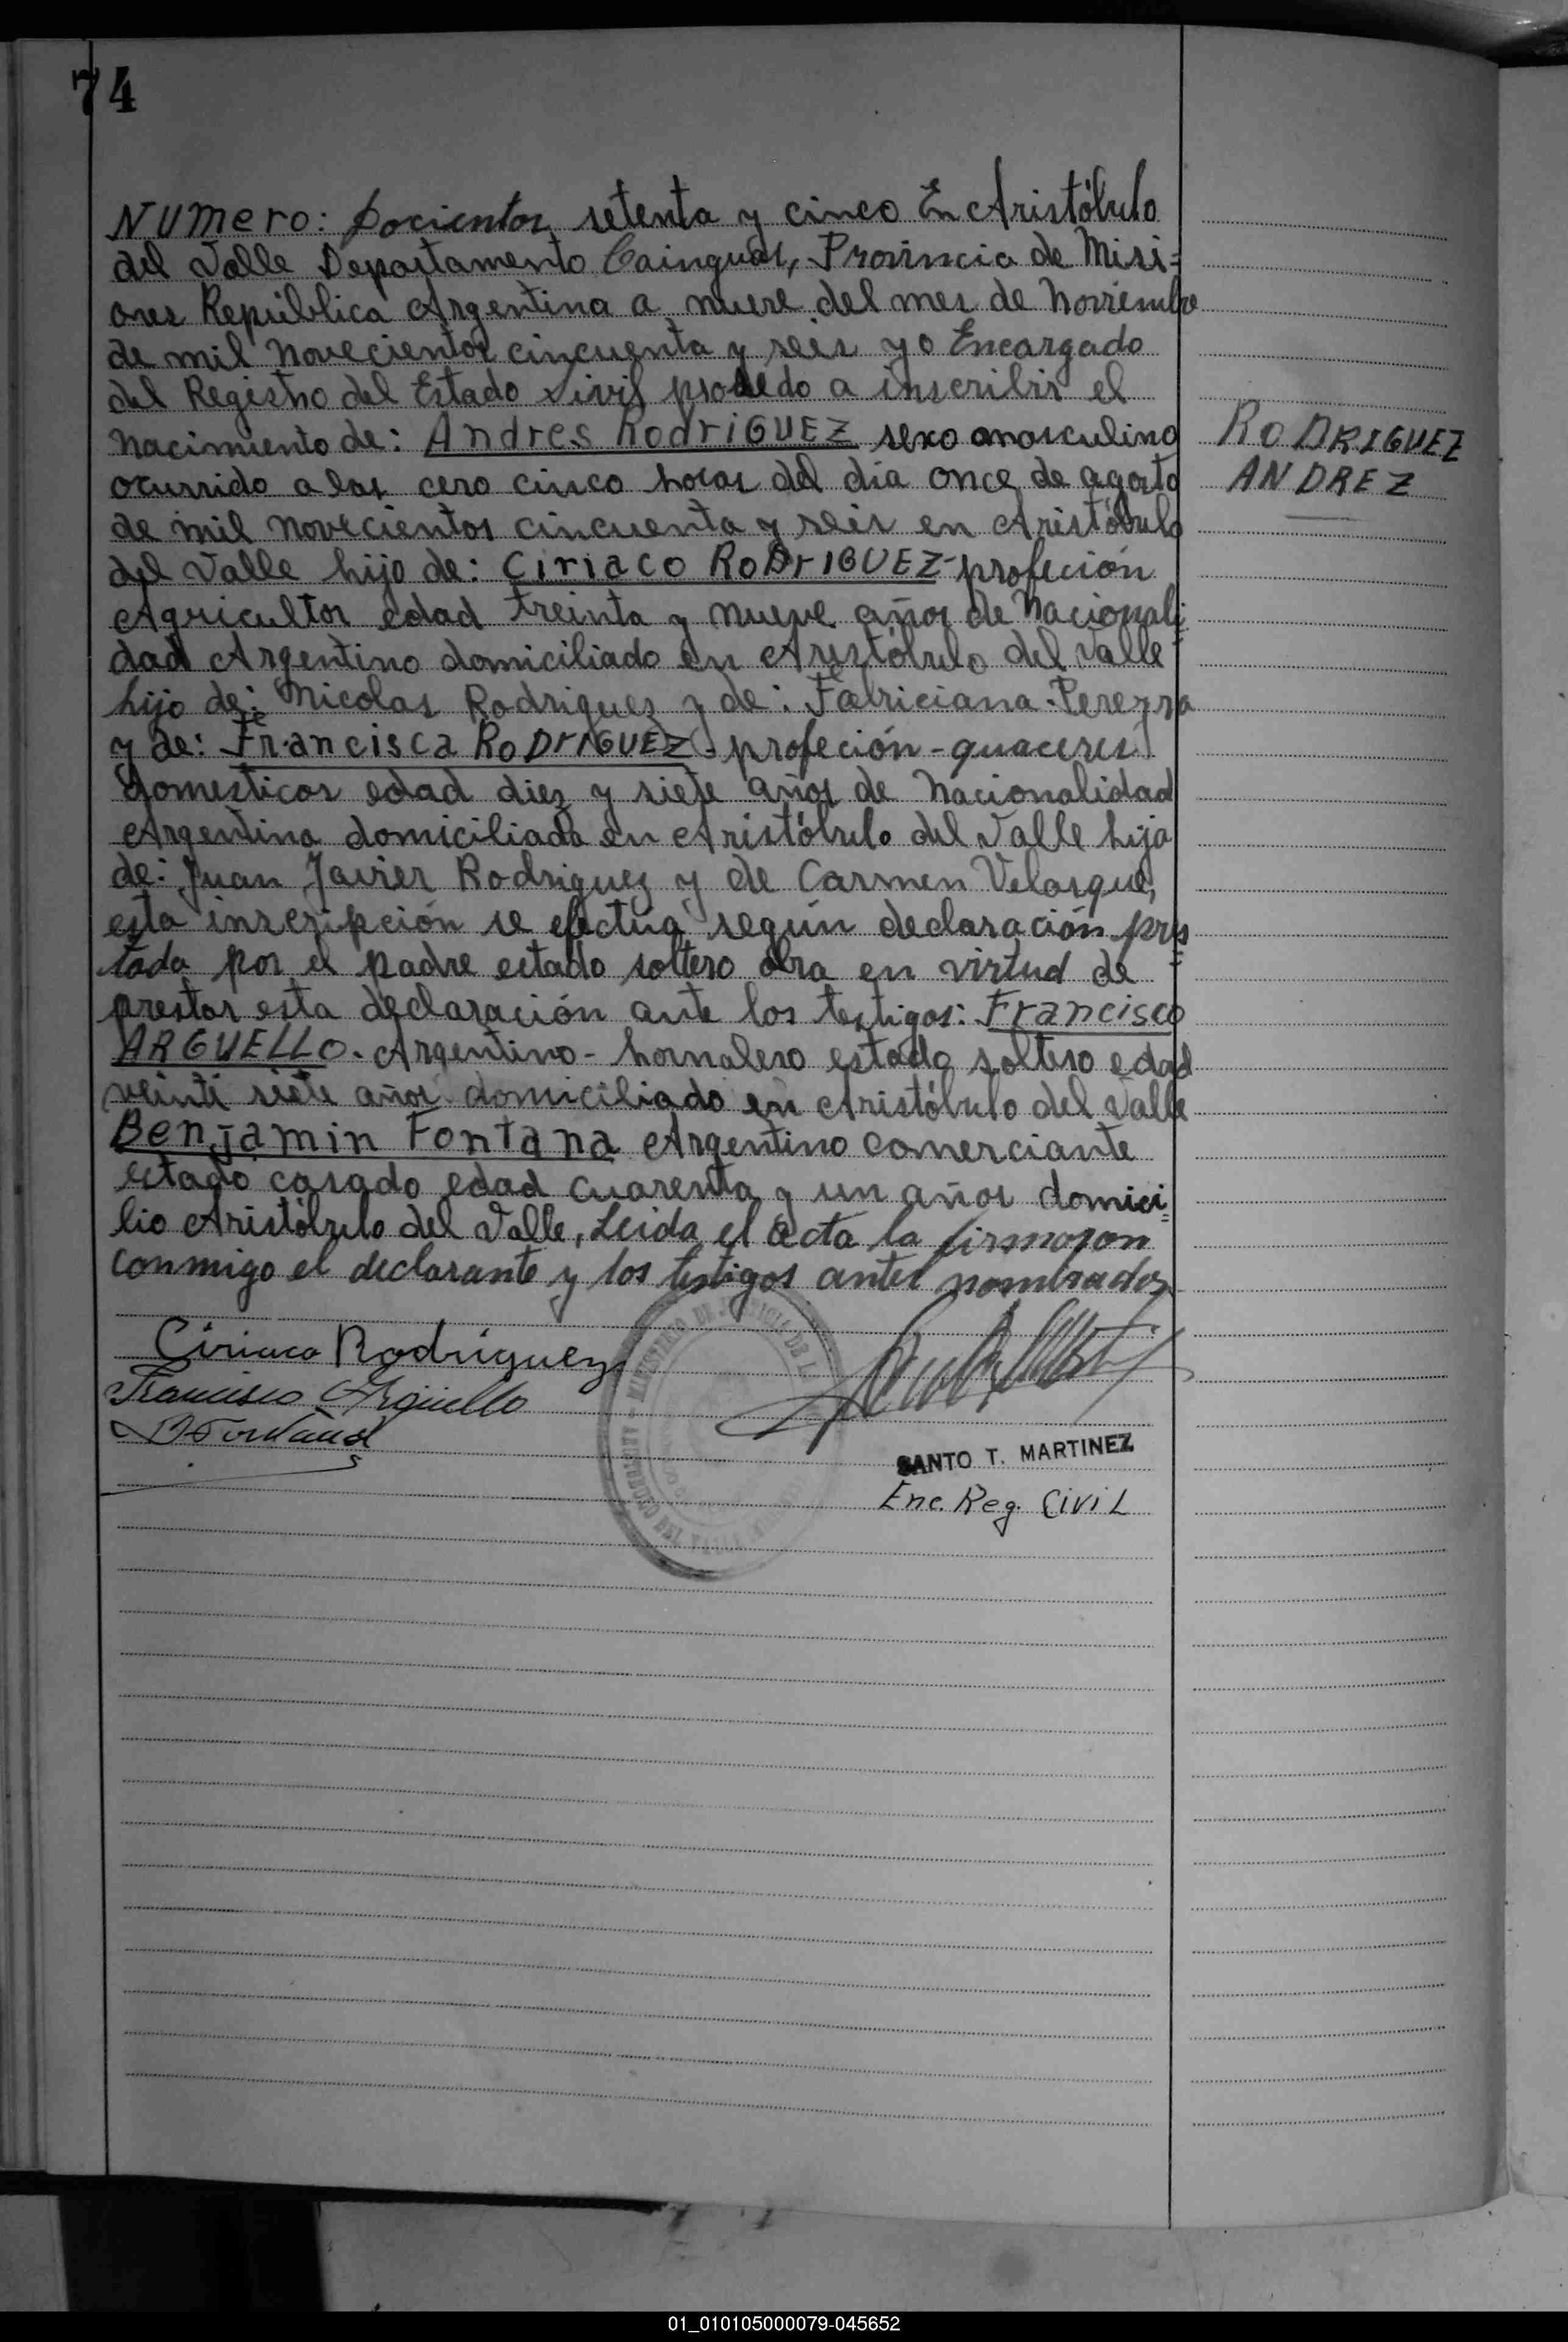 74
NUmero: Docientos setenta y cinco En Aristóbulo
del Valle Departamento Cainguas, Provincia de Misi=
ones República Argentina a nueve del mes de Noviembre
de mil novecientos cincuenta y seis yo Encargado
del Registro del Estado Sivil prosedo a inscribir el
Nacimiento de: Andres RodriGUEZ sexo masculino
ocurrido a las cero cinco horas del día once de agosto
de mil novecientos cincuenta y seis en Aristóbulo
del Valle hijo de: Ciriaco RoDriGUEZ-profeción
Agricultor edad treinta y nueve años de Nacionali
dad Argentino domiciliado en Aristóbulo del Valle
hijo de: Nicolas Rodriguez y de: Fabriciana Pereyra
y de: Francisca RoDriGUEZ- profeción-quaceres
domesticos edad diez y siete años de Nacionalidad
Argentina domiciliada en Aristóbulo del Valle hija
de: Juan Javier Rodriguez y de Carmen Velasque,
esta inscripción se efectúa según declaración pres
tada por el padre estado soltero obra en virtud de
prestar esta declaración ante los testigos: Francisco
ARGUELLO. Argentino- hornalero estado soltero edad
veinti siete años domiciliado en Aristóbulo del Valle
Benjamin Fontana Argentino comerciante
estado casado edad cuarenta y un años domici
lio Aristóbulo del Valle, Leida el acta la firmaron
conmigo el declarante y los testigos antes nombrados
RoDRIGUEZ
ANDREZ
Ciriaco Rodriguez
Francisco Argüello
B Fontana
SANTO T. MARTINEZ
Enc. Reg. CiviL
01_010105000079-045652